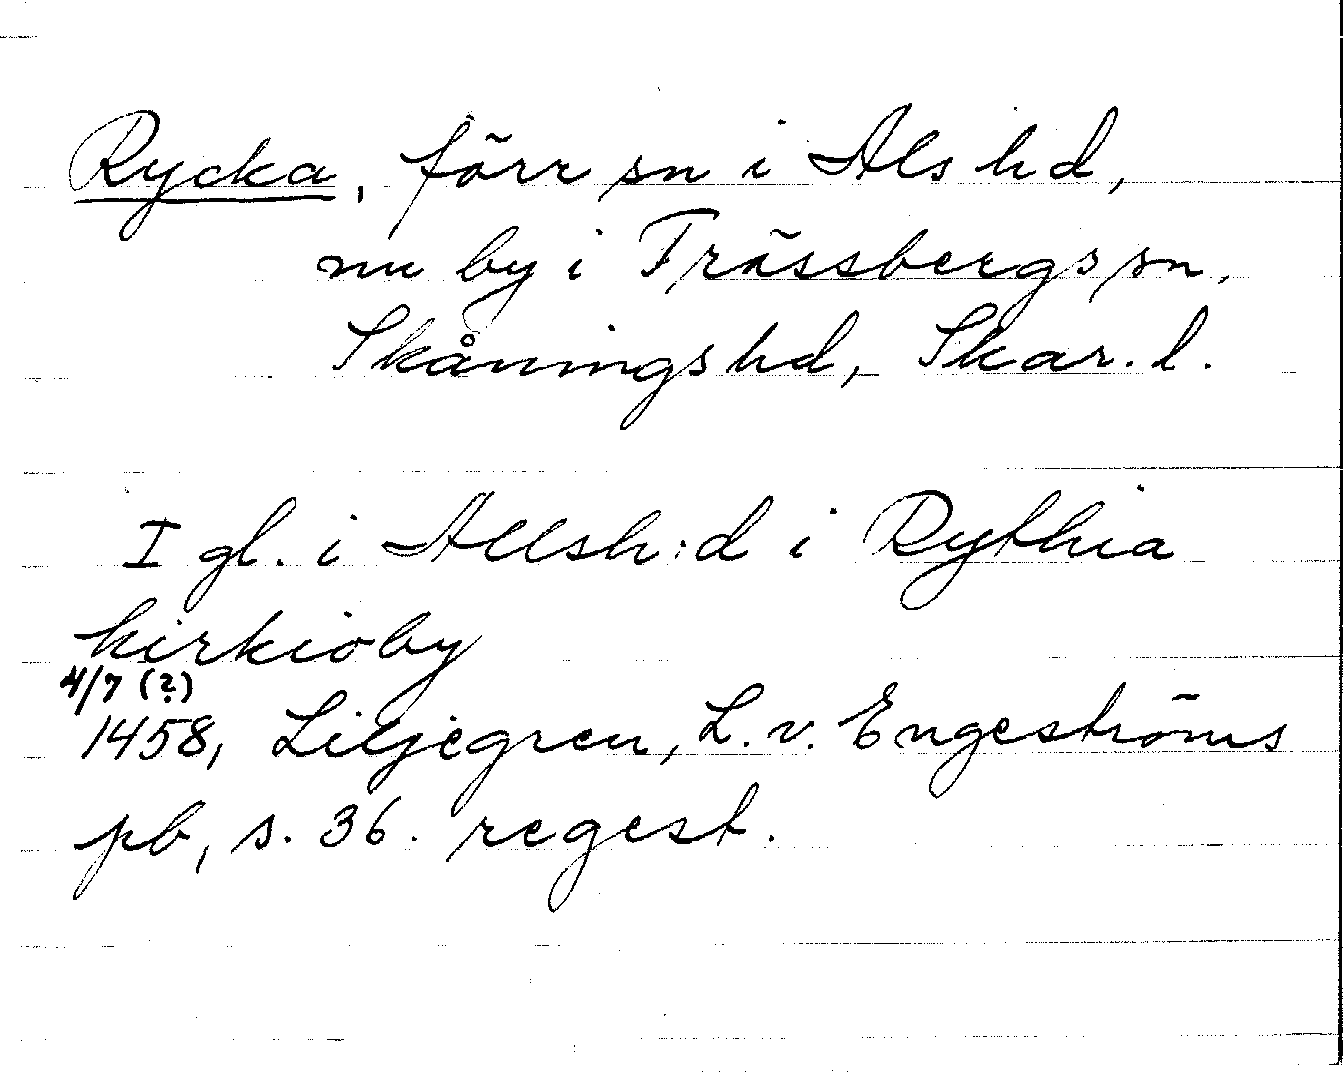 Rycka, förr sn i Als hd,
nu by i Trässbergs sn,
Skånings hd, Skar. l.
I gl. i Allsh:d i Rythia
kirkioby
4/7 (?)
1458, Liljegren, L. v. Engeströms
pb, s. 36. regest.